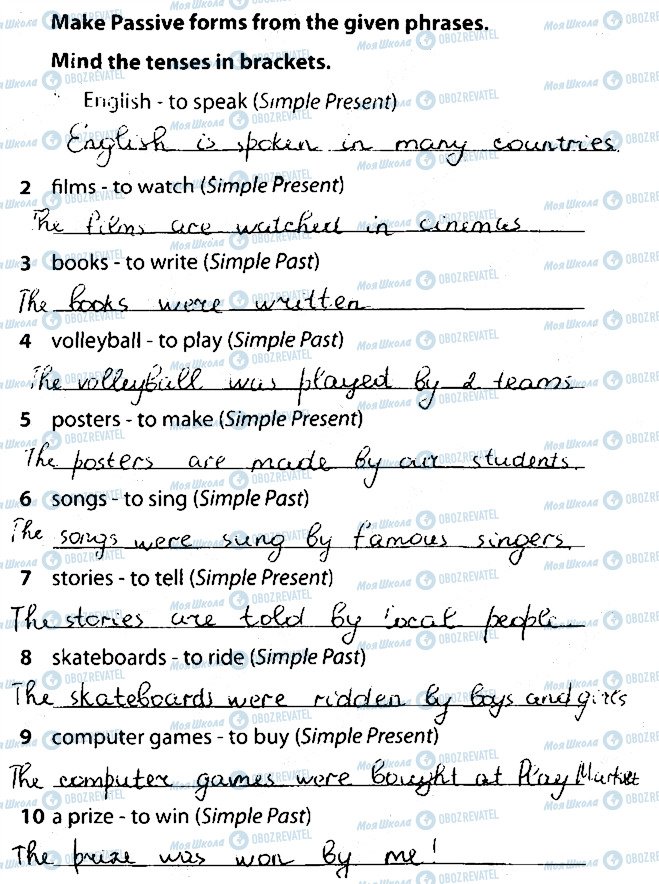 Make Passive forms from the given phrases.
Mind the tenses in brackets.
English - to speak (Simple Present)
English is spoken in many countries.
2 films - to watch (Simple Present)
The films are watched in cinemas
3 books - to write (Simple Past)
The books were written
4 volleyball - to play (Simple Past)
The volleyball was played by 2 teams
5 posters - to make (Simple Present)
The posters are made by our students.
6 songs - to sing (Simple Past)
The songs were sung by famous singers.
7 stories - to tell (Simple Present)
The stories are told by local people
8 skateboards - to ride (Simple Past)
The skateboards were ridden by boys and girls
9 computer games - to buy (Simple Present)
The computer games were bought at Play Market
10 a prize - to win (Simple Past)
The prize was won by me!
Моя Школа OBOZREVATEL